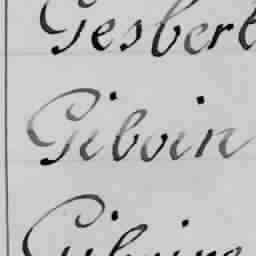 Gesbert
Giboin